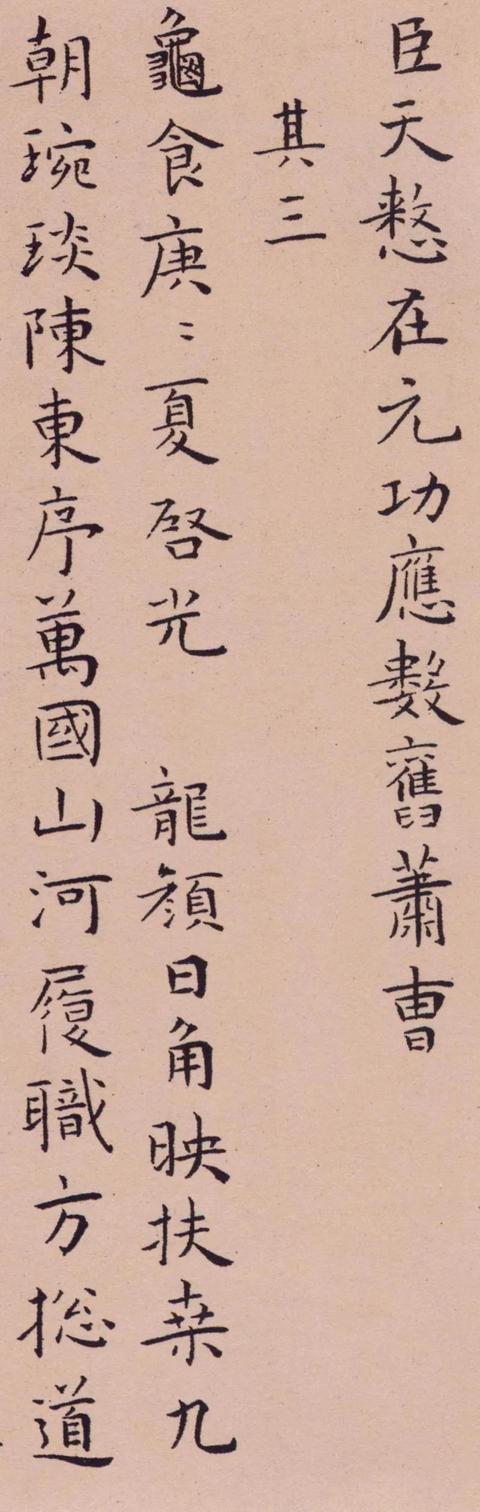 臣天憗在元功應數舊蕭曹
其三
龜食庚〻夏啓光　龍顔日角映扶桒九
朝琬琰陳東序萬國山河履職方捴道